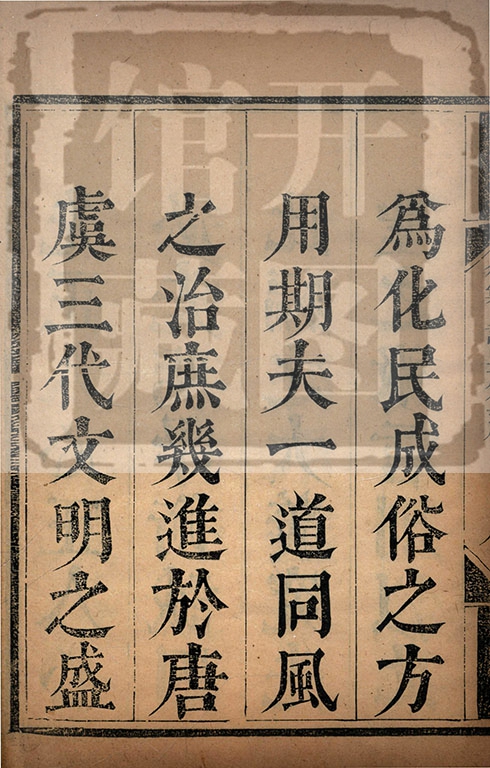 爲化民成俗之方
用期夫一道同風
之治庶幾進於唐
虞三代文明之盛
開圖
館藏